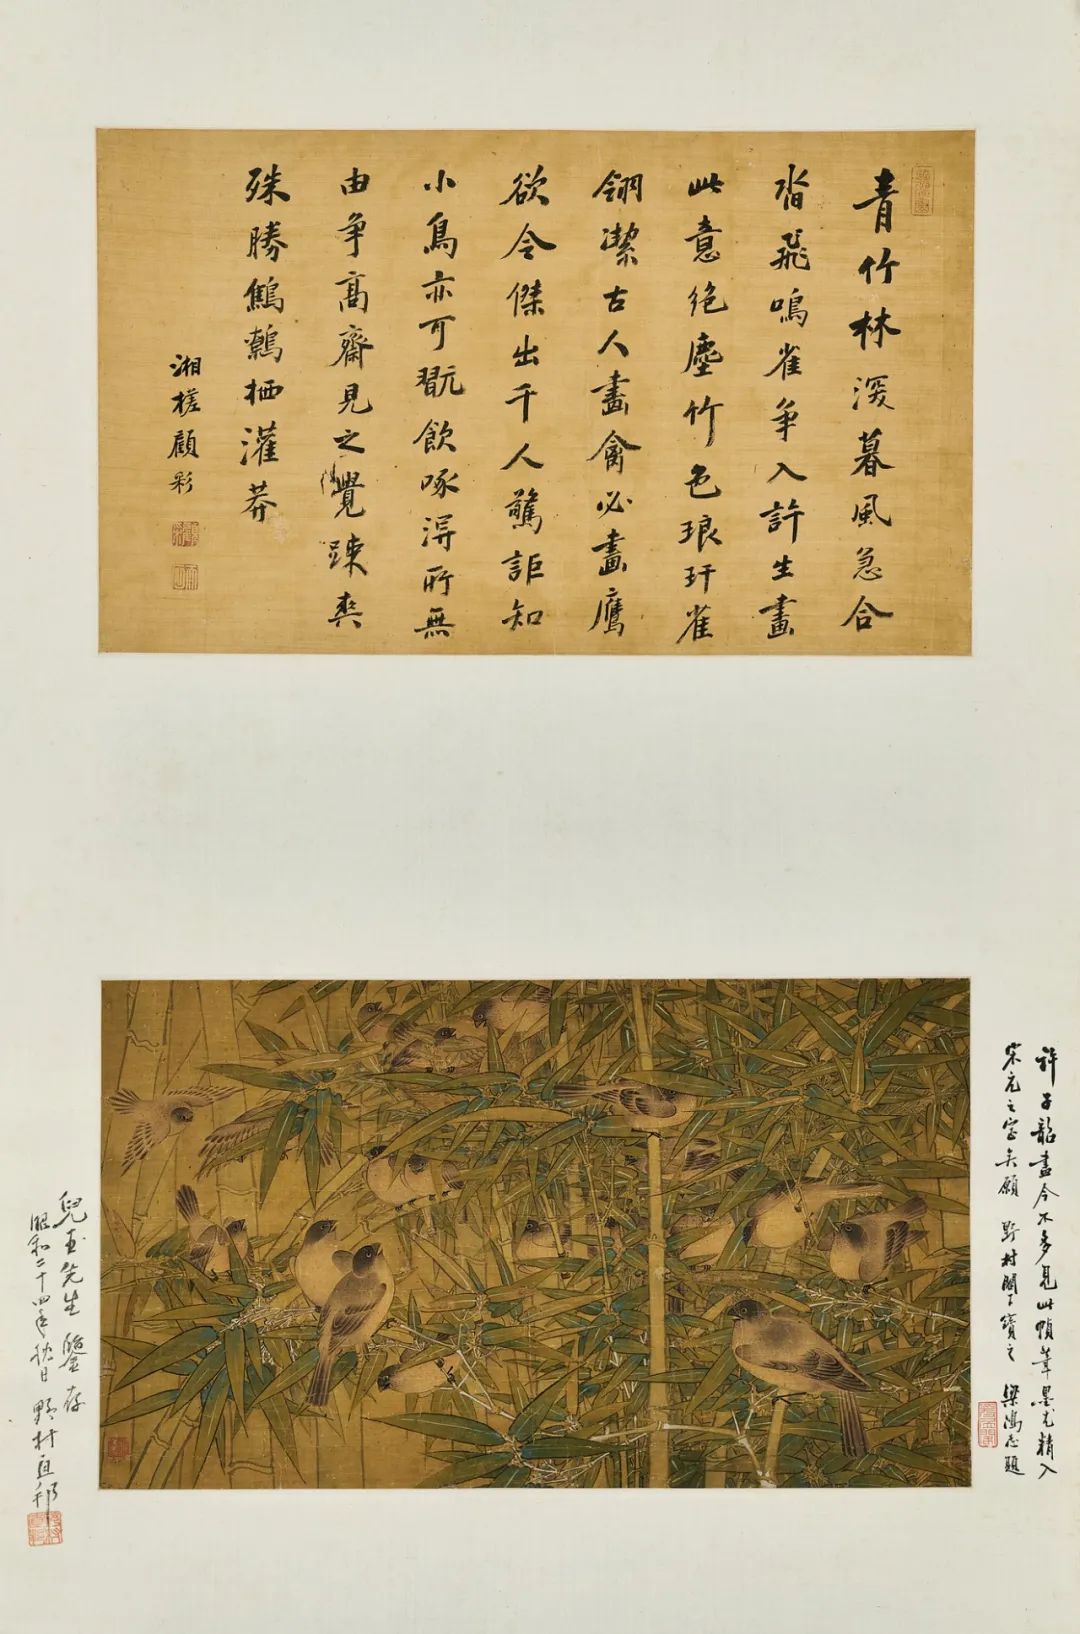 青竹林深暮風急合
沓飛鳴雀爭入許生畫
此意絕塵竹色琅玕雀
翎潔古人畫禽必畫鷹
欲令傑出千人驚詎知
小鳥亦可翫飲啄得所無
由爭高齋見之覺踈爽
殊勝鷦鷯栖灌莽
湘槎顧彩
許子韶畫今不多見此幀筆墨尤精入
宋元之室矣願 野村閣下寶之 梁鴻志題
兒玉先生 鑒存
昭和二十四年秋日 野村直邦